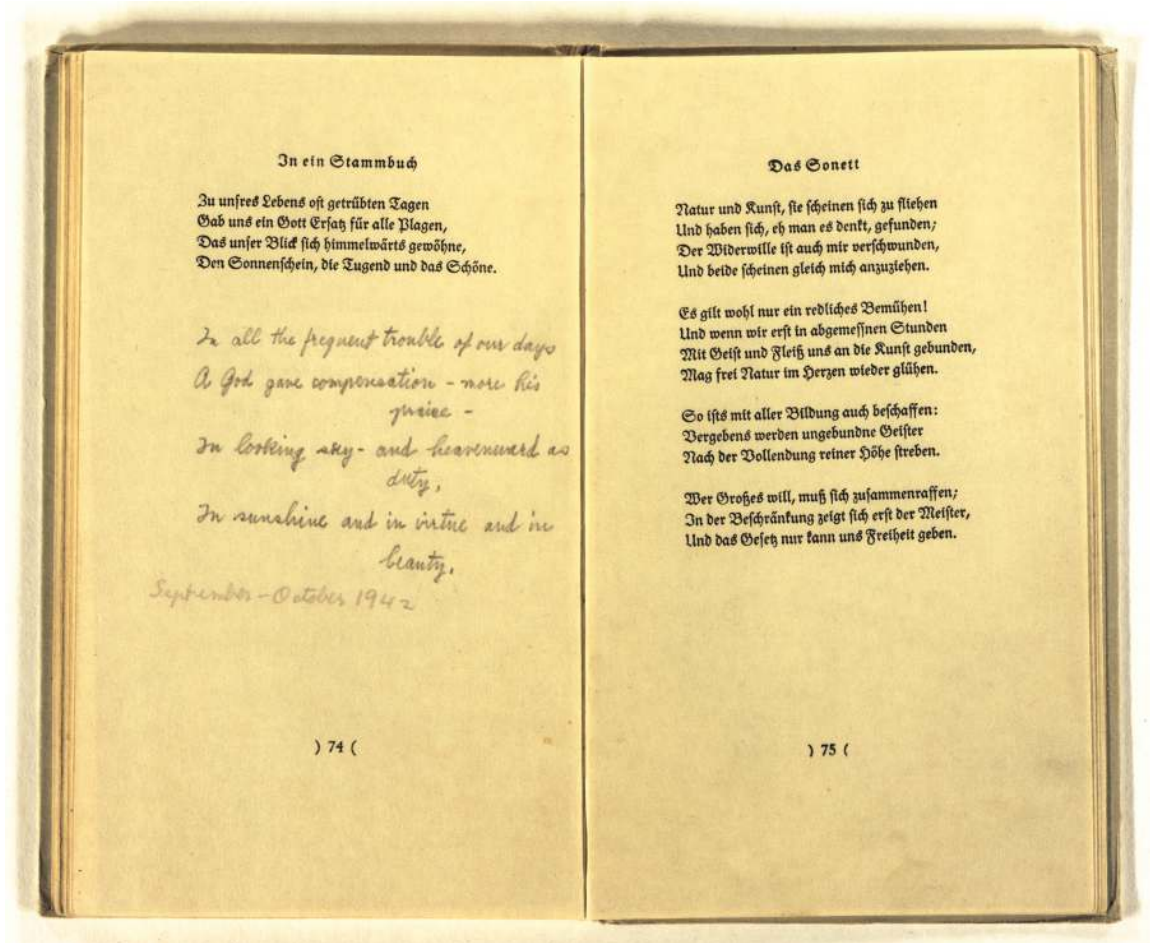 In ein Stammbuch
Zu unsres Lebens oft getrübten Tagen
Gab uns ein Gott Ersatz für alle Plagen,
Das unser Blick sich himmelwärts gewöhne,
Den Sonnenschein, die Tugend und das Schöne.
In all the frequent trouble of our days
A God gave compensation - more his
praise -
In looking sky- and heavenward as
duty,
In sunshine and in virtue and in
beauty.
September - October 1942
) 74 (
Das Sonett
Natur und Kunst, sie scheinen sich zu fliehen
Und haben sich, eh man es denkt, gefunden;
Der Widerwille ist auch mir verschwunden,
Und beide scheinen gleich mich anzuziehen.
Es gilt wohl nur ein redliches Bemühen!
Und wenn wir erst in abgemessnen Stunden
Mit Geist und Fleiß uns an die Kunst gebunden,
Mag frei Natur im Herzen wieder glühen.
So ists mit aller Bildung auch beschaffen:
Vergebens werden ungebundne Geister
Nach der Vollendung reiner Höhe streben.
Wer Großes will, muß sich zusammenraffen;
In der Beschränkung zeigt sich erst der Meister,
Und das Gesetz nur kann uns Freiheit geben.
) 75 (